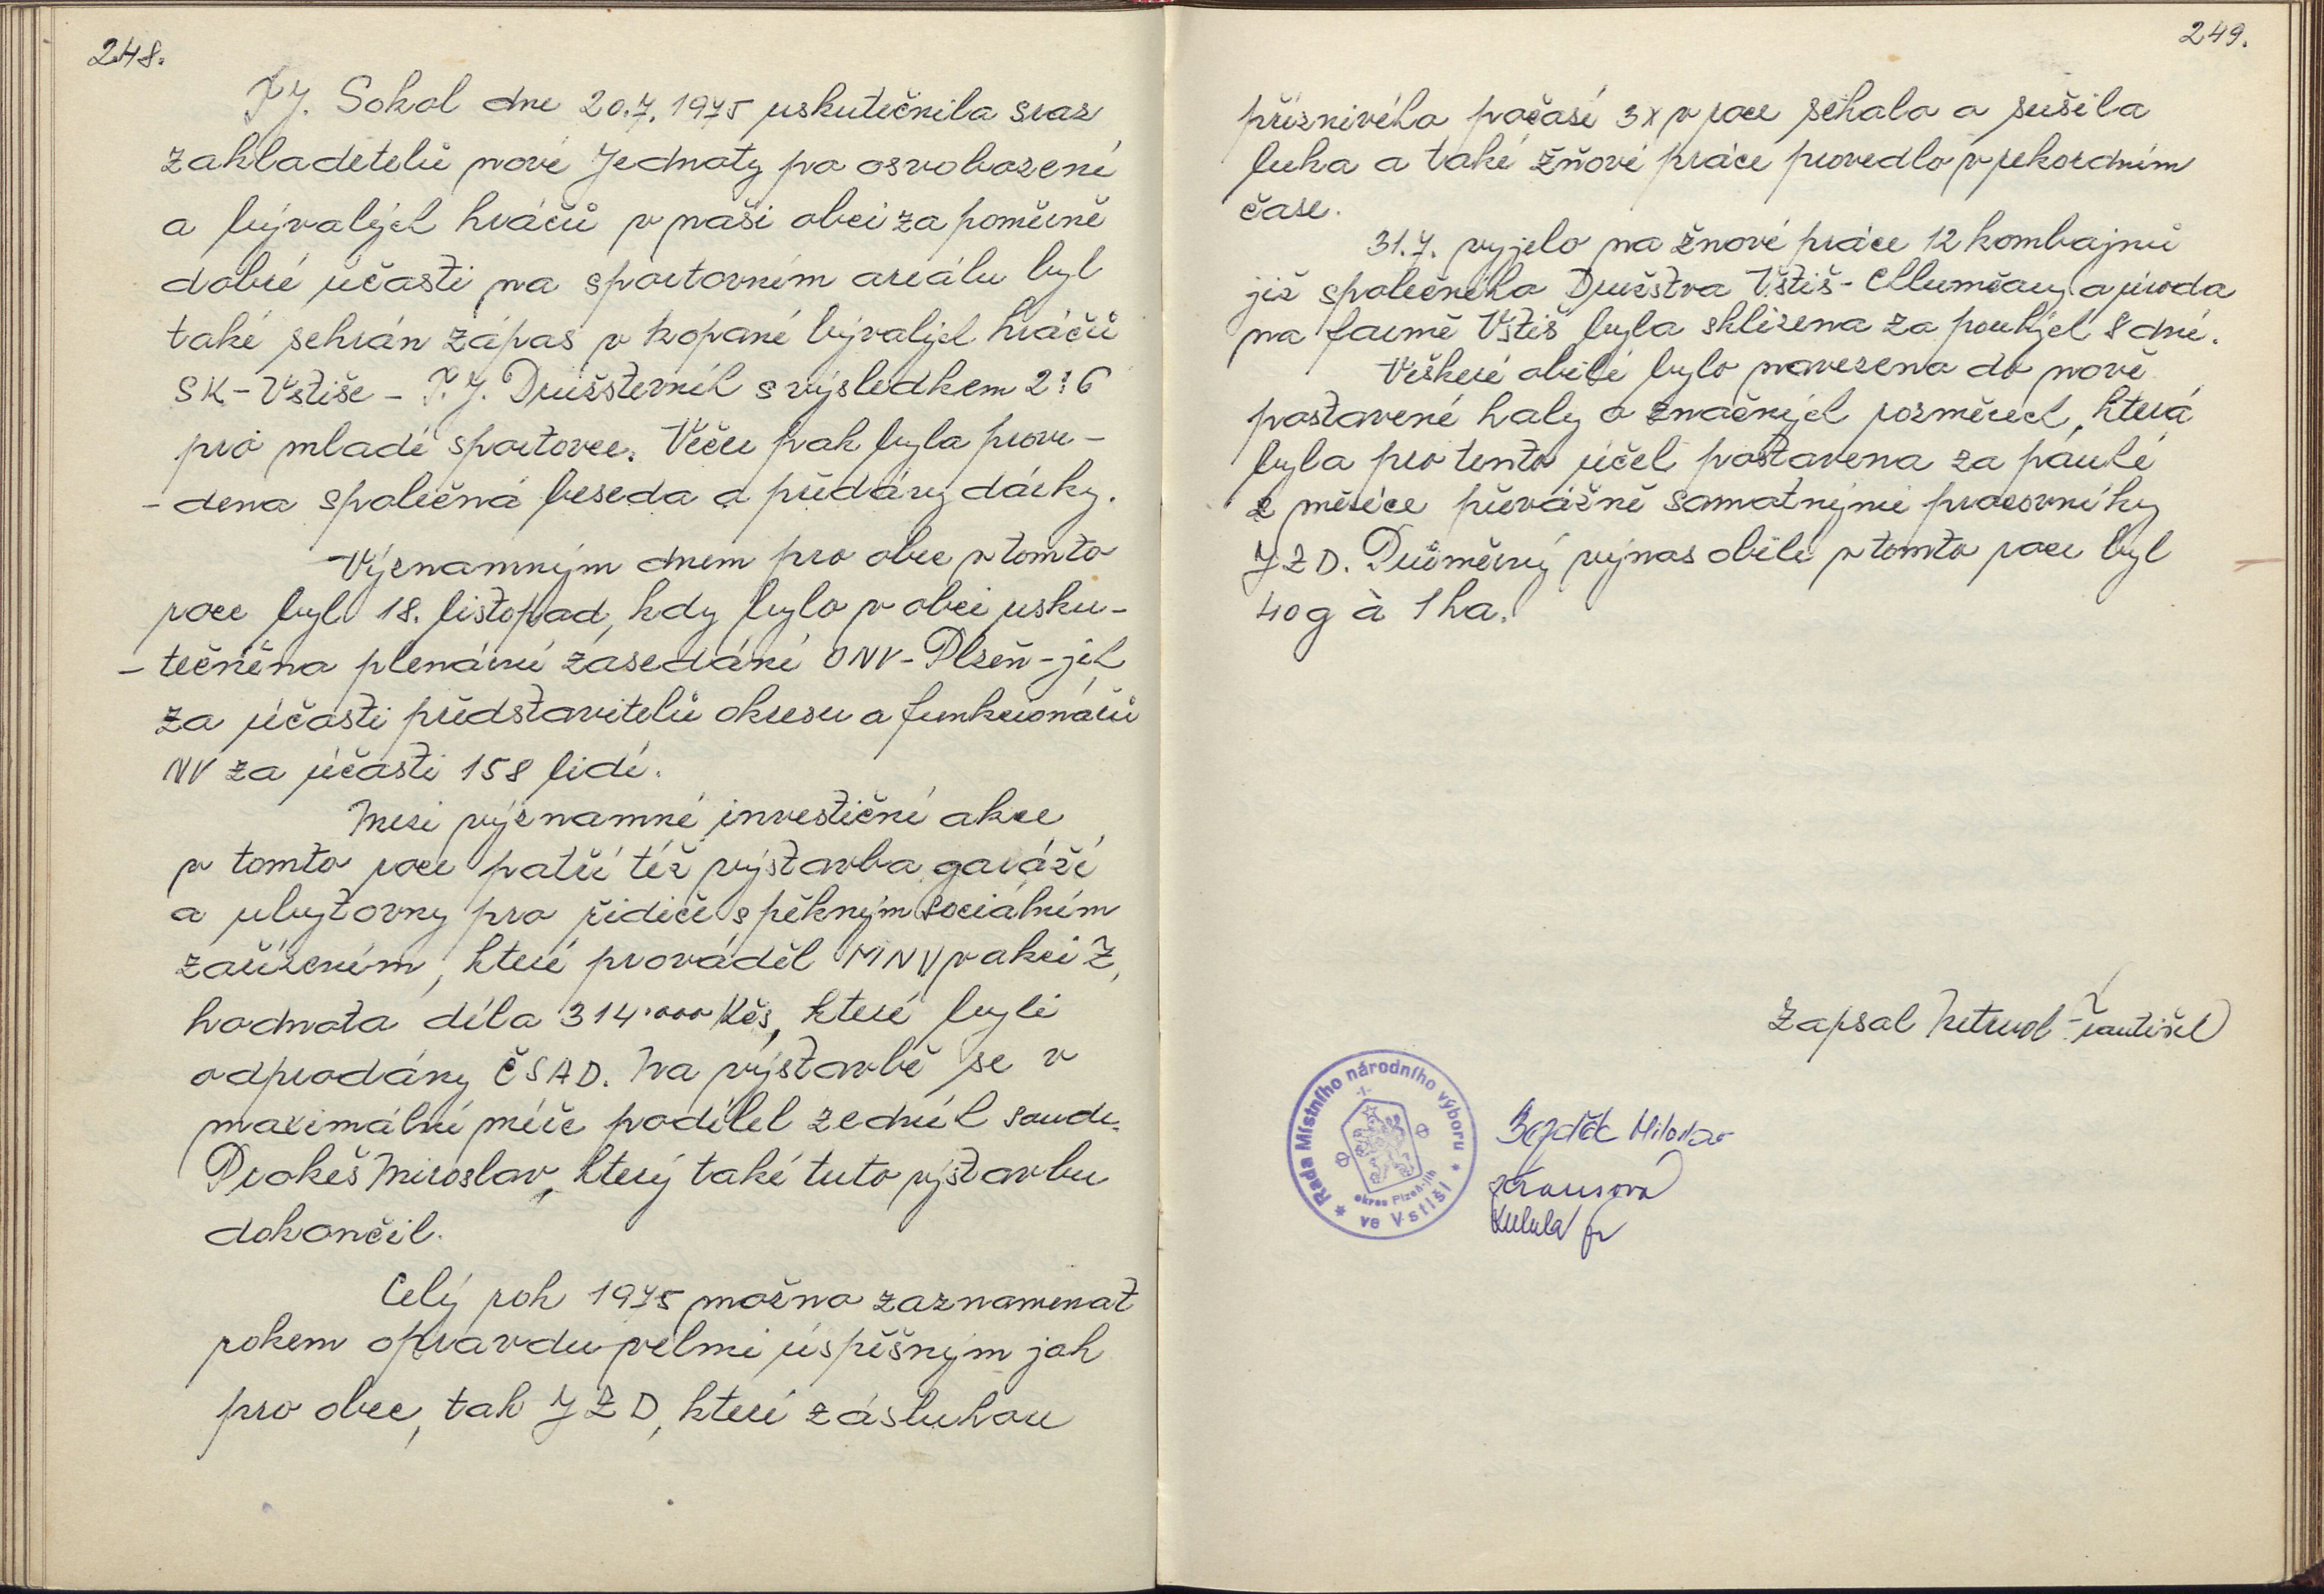 248.
T.J. Sokol dne 20.7.1975 uskutečnila sraz
zakladetelů nové Jednoty po osvobození
a bývalých hráčů v naši obci za poměrně
dobré účasti na sportovním areálu byl
také sehrán zápas v kopané bývalých hráčů
SK-Vstiše - T.J. Družsterník s výsledkem 2:6
pro mladé sportovce. Večer pak byla prove-
-dena společná beseda a předány dárky.
Významným dnem pro obec v tomto
roce byl 18. listopad, kdy bylo v obci usku-
-tečněna plenární zasedání ONV-Plzeň-jih
za účasti představitelů okresu a funkcionářů
NV za účasti 158 lidí.
Mezi významné investiční akce
v tomto roce patří též výstavba garáží
a ubytovny pro řidiče s pěkným sociálním
zařízením, které prováděl MNV v akci Z,
hodnota díla 314.000 Kčs, které byli
odprodány ČSAD. Na výstavbě se v
maximální míře podílel zedník soudr.
Prokeš Miroslav, který také tuto výstavbu
dokončil.
Celý rok 1975 možno zaznamenat
rokem opravdu velmi úspěšným jak
pro obec, tak JZD, které zásluhou
249.
příznivého počasí 3x v roce sekala a sušila
luka a také žňové práce provedlo v rekordním
čase.
31.7. vyjelo na žnové práce 12 kombajnů
již společného Družstva Vštiš-Chlumčany a úroda
na farmě Vstiš byla sklizena za pouhých 8 dní.
Veškeré obilí bylo navezeno do nově
postavené haly o značných rozměrech, která
byla pro tento účel postavena za pouhé
2 měsíce převážně samotnými pracovníky
JZD. Průměrný výnos obilí v tomto roce byl
40 q à 1 ha.
Zapsal František
Rada Místního národního výboru
okres Plzeň-jih
ve Vstiši
Bezděk Miloslav
Krausová
Kubula Fr